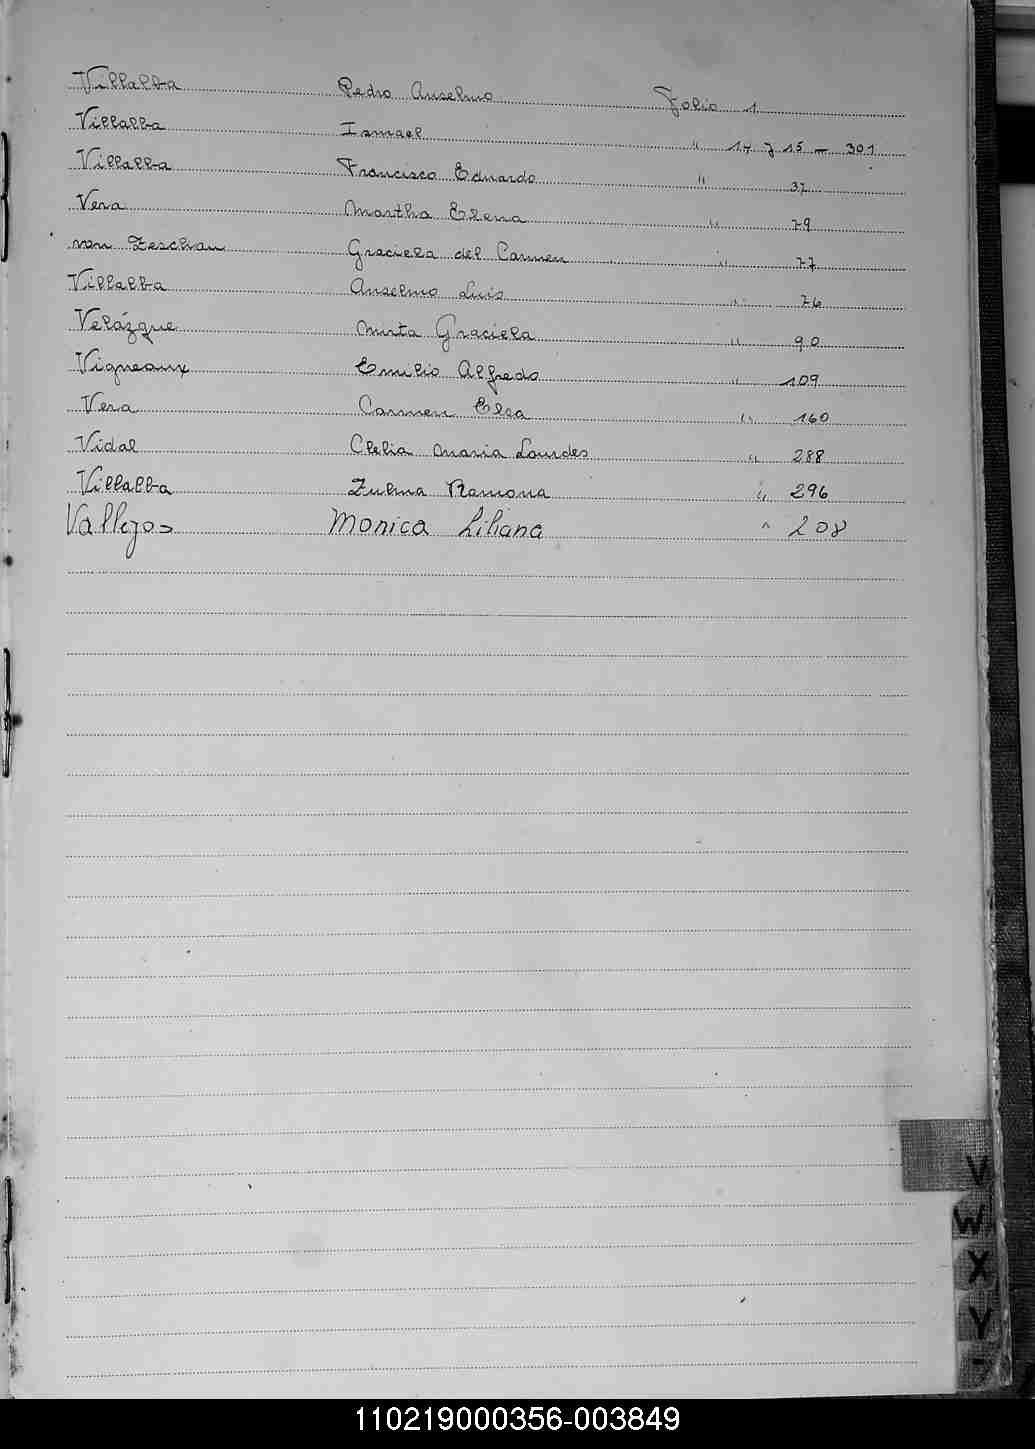 Villalba Pedro Anselmo Folio 1
Villalba Ismael " 14 y 15 - 301
Villalba Francisco Eduardo " 37
Vera Martha Elena " 79
von Zeschau Graciela del Carmen " 77
Villalba Anselmo Luis " 76
Velázque Mirta Graciela " 90
Vigneaux Emilio Alfredo " 109
Vera Carmen Elsa " 160
Vidal Clelia Maria Lourdes " 288
Villalba Zulma Ramona " 296
Vallejos Monica Liliana " 208
V
W
X
Y
110219000356-003849